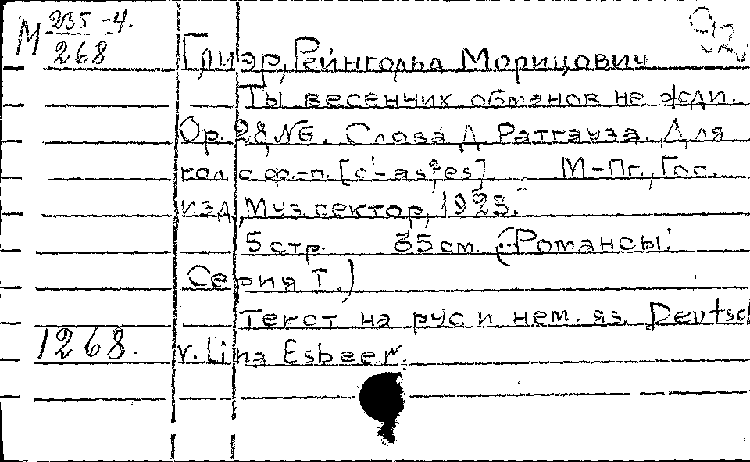 М 235-4.
268
Глиэр, Рейнгольд Морицович
Ты весенних обманов не жди.
Op. 28, №6. Слова Д. Ратгауза. Для
гол. с ф-п. [c'-as²es]. М-Пг., Гос.
изд., Муз. сектор, 1923.
5 стр. 35 см. (Романсы.
Серия I.)
Текст на рус. и нем. яз. Deutsch
1268. v. Lina Esbeer.